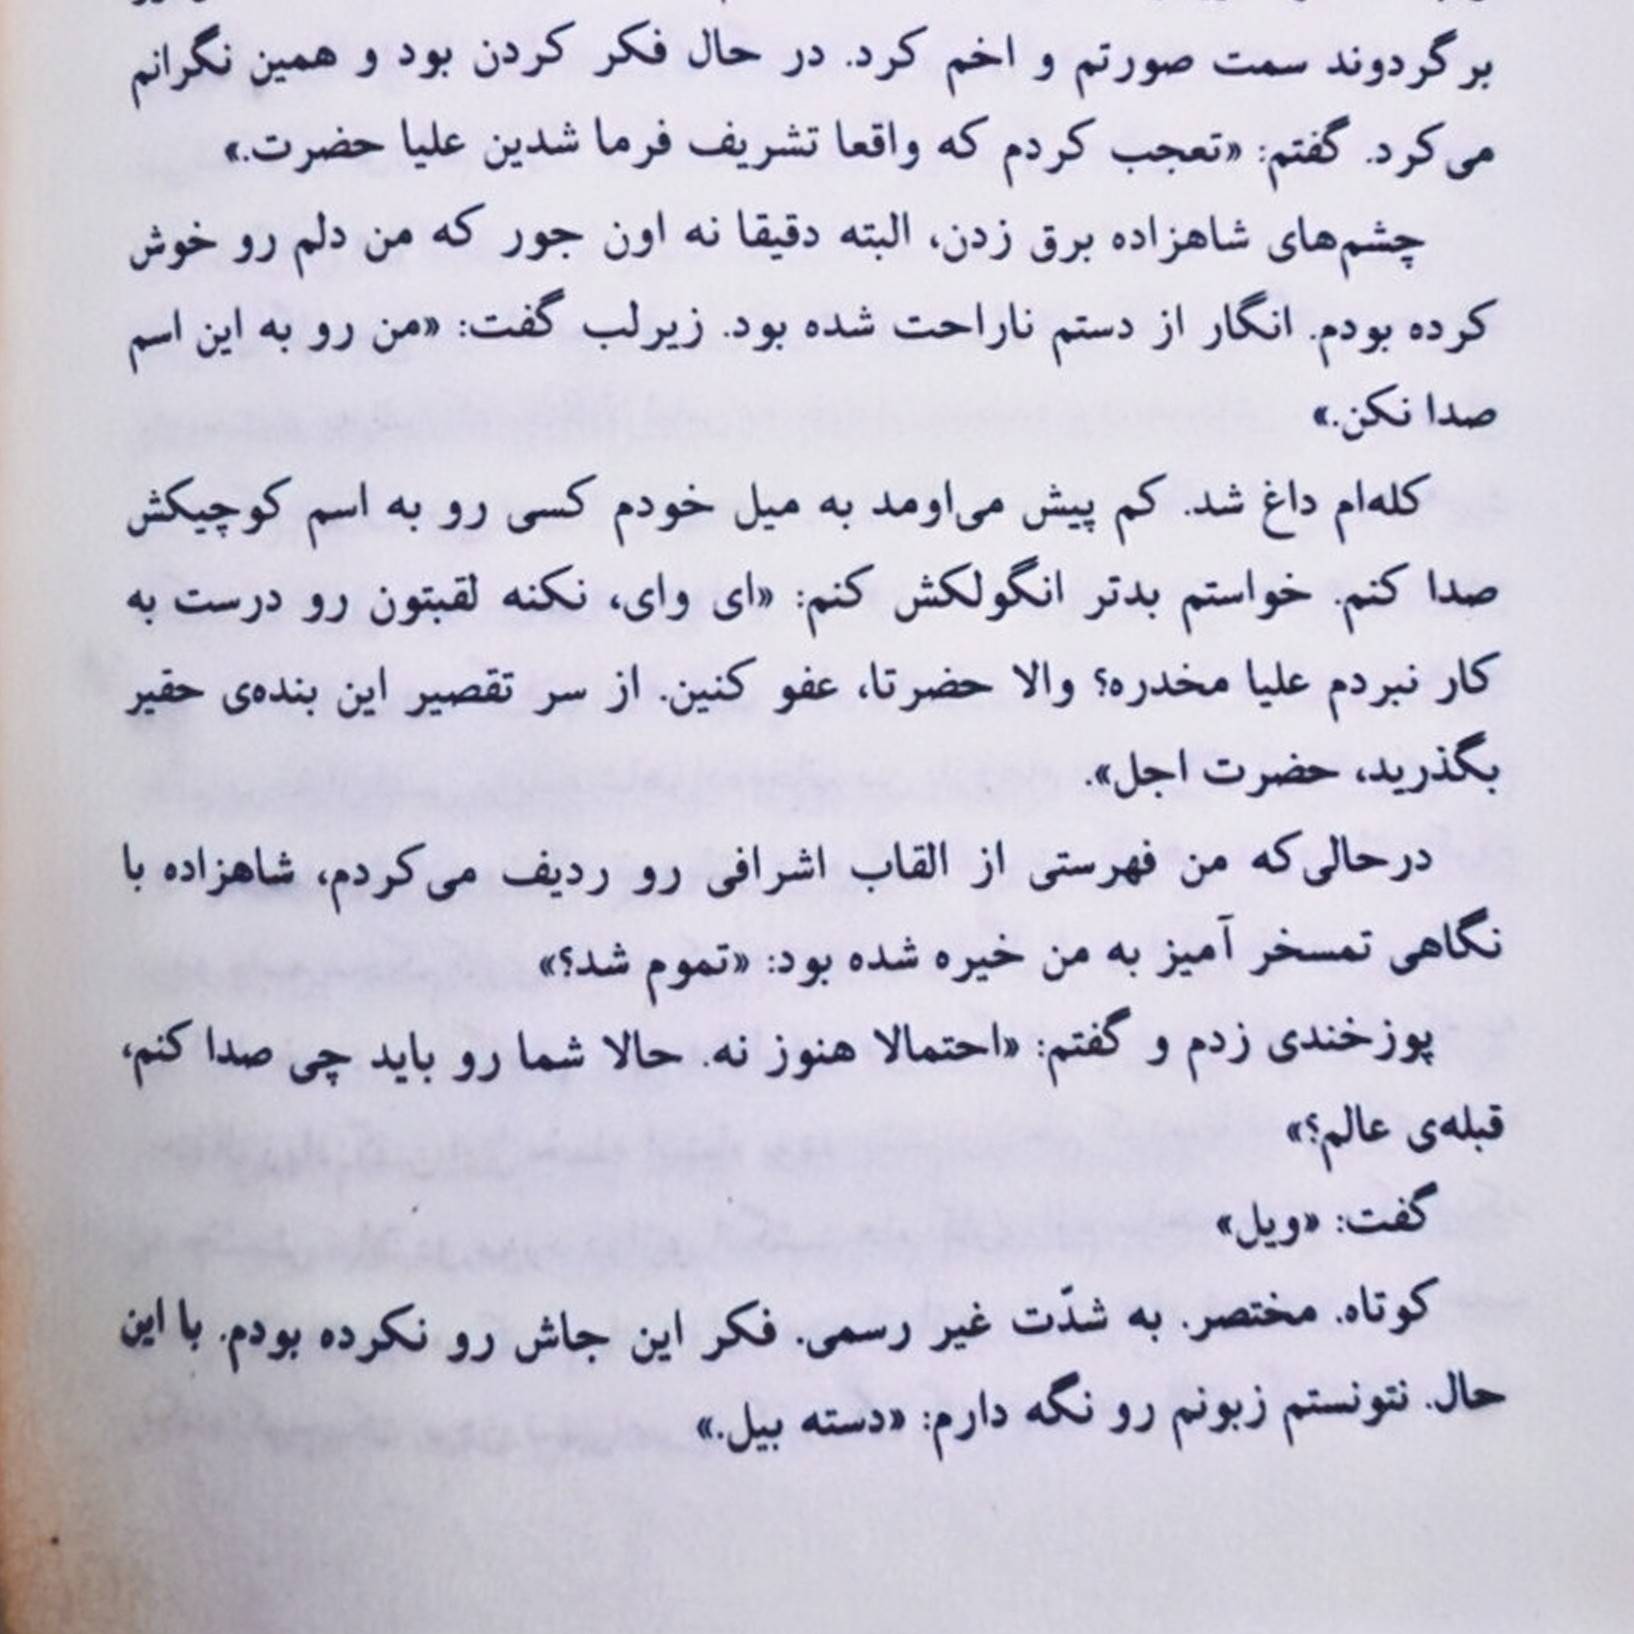 برگردوند سمت صورتم و اخم کرد. در حال فکر کردن بود و همین نگرانم
می‌کرد. گفتم: «تعجب کردم که واقعا تشریف فرما شدین علیا حضرت.»
چشم‌های شاهزاده برق زدن، البته دقیقا نه اون جور که من دلم رو خوش
کرده بودم. انگار از دستم ناراحت شده بود. زیرلب گفت: «من رو به این اسم
صدا نکن.»
کله‌ام داغ شد. کم پیش می‌اومد به میل خودم کسی رو به اسم کوچیکش
صدا کنم. خواستم بدتر انگولکش کنم: «ای وای، نکنه لقبتون رو درست به
کار نبردم علیا مخدره؟ والا حضرتا، عفو کنین. از سر تقصیر این بنده‌ی حقیر
بگذرید، حضرت اجل».
درحالی‌که من فهرستی از القاب اشرافی رو ردیف می‌کردم، شاهزاده با
نگاهی تمسخر آمیز به من خیره شده بود: «تموم شد؟»
پوزخندی زدم و گفتم: «احتمالا هنوز نه. حالا شما رو باید چی صدا کنم،
قبله‌ی عالم؟»
گفت: «ویل»
کوتاه. مختصر. به شدّت غیر رسمی. فکر این جاش رو نکرده بودم. با این
حال. نتونستم زبونم رو نگه دارم: «دسته بیل.»